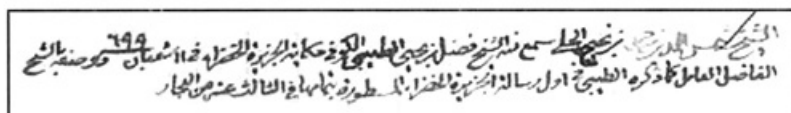 الشيخ شمس الدين بن نجيح الحلي سمع منه الشيخ فضل بن يحيى الطيبي الكوفي حكاية الجزيرة الخضراء في ١١ شعبان ٦٩٩ ووصفه بالشيخ
الفاضل العامل كما ذكره الطيبي في اول رسالة الجزيرة الخضراء المسطورة بتمامها في الثالث عشر من البحار